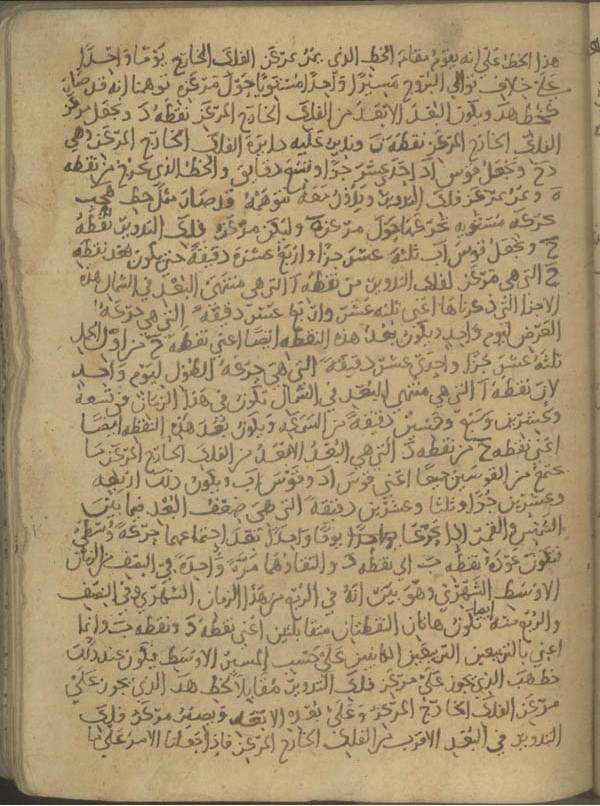 هذا الخط على انه يقوم مقام الخط الذى يمر بمركز الفلك الخارج يوما واحدا
على خلاف توالى البروج مسيرا واحدا مستويا حول مركز ه توهمنا انه قد صار
كخط هد ويكون البعد الابعد من الفلك الخارج المركز نقطة د ونجعل مركز
الفلك الخارج المركز نقطة ن وندير عليه دايرة الفلك الخارج المركز وهى
دح ونجعل قوس اد احد عشر جزوا وتسع دقايق والخط الذى يخرج من نقطة
ه ويمر بمركز فلك التدوير ويدور معه نتوهمه قد صار مثل خط هحب
حركة مستوية نحركها حول مركز ه وليكن مركز فلك التدوير نقطة
ح ونجعل قوس اب ثلثة عشر جزا واربع عشرة دقيقة حتى يكون بعد نقطة
ح التى هى مركز لفلك التدوير من نقطة ا التى هى منتهى البعد فى الشمال هذه
الاجزا التى ذكرناها اعنى ثلثة عشر واربع عشر دقيقة التى هى حركة
العرض ليوم واحد ويكون بعد هذه النقطة ايضا اعنى نقطة ح من اول الحمل
ثلثة عشر جزا واحدى عشر دقيقة التى هى حركة الطول ليوم واحد
لان نقطة ا التى هى منتهى البعد فى الشمال تكون فى هذا الزمان فى تسعة
وعشرين وسبع وخمسين دقيقة من السمكة ويكون بعد هذه النقطة ايضا
اعنى نقطة ح من نقطة د التى هى البعد الابعد من الفلك الخارج المركز ما
يجتمع من القوسين جميعا اعنى قوس اد وقوس اب ويكون ذلك اربعة
وعشرين جزا وثلثا وعشرين دقيقة التى هى ضعف البعد فيما بين
الشمس والقمر اذا تحركا يوما واحدا بعد اجتماعهما حركة وسطى
فتكون عودة نقطة ب الى نقطة د والتقاوهما مرة واحدة فى النصف الزمان
الاوسط الشهرى وهو بين انه فى الربع من هذا الزمان الشهرى وفى النصف
والربع منه ايضا تكون هاتان النقطتان متقابلتين اعنى نقطة د ونقطة ب وانما
اعنى بالتربيعين التربيعين الكاينين على حسب المسير الاوسط فيكون عند ذلك
خط هب الذى يجوز على مركز فلك التدوير مقابلا لخط هد الذى يجوز على
مركز الفلك الخارج المركز وعلى بعده الابعد ويصير مركز فلك
التدوير فى البعد الاقرب من الفلك الخارج المركز فاذا جعلنا الامر على ما